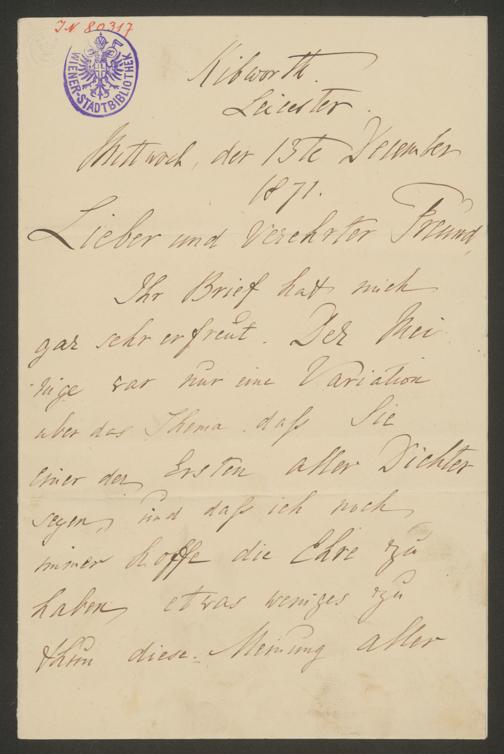 I.N 80317
WIENER-STADTBIBLIOTHEK
Kibworth.
Leicester.
Mittwoch, der 13te December
1871.
Lieber und verehrter Freund,
Ihr Brief hat mich
gar sehr erfreut. Der Mei
nige war nur eine Variation
über das Thema daß Sie
einer der Ersten aller Dichter
seyen, und daß ich noch
immer hoffe die Ehre zu
haben, etwas weniges zu
thun diese Meinung aller